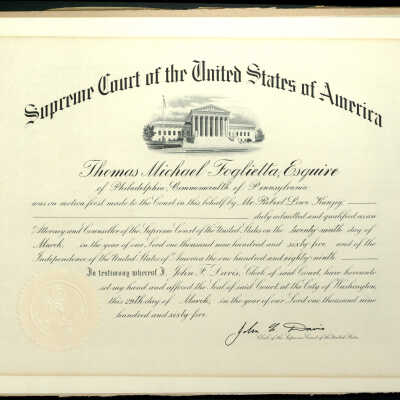 Supreme Court of the United States of America
Thomas Michael Foglietta, Esquire
of Philadelphia, Commonwealth of Pennsylvania
was on motion first made to the Court in this behalf by Mr. Robert Lowe Kunzig
duly admitted and qualified as an
Attorney and Counsellor of the Supreme Court of the United States on the twenty-ninth day of
March, in the year of our Lord one thousand nine hundred and sixty-five and of the
Independence of the United States of America the one hundred and eighty-ninth
In testimony whereof I, John F. Davis, Clerk of said Court, have hereunto
set my hand and affixed the Seal of said Court, at the City of Washington,
this 29th day of March, in the year of our Lord one thousand nine
hundred and sixty-five.
John F. Davis
Clerk of the Supreme Court of the United States.